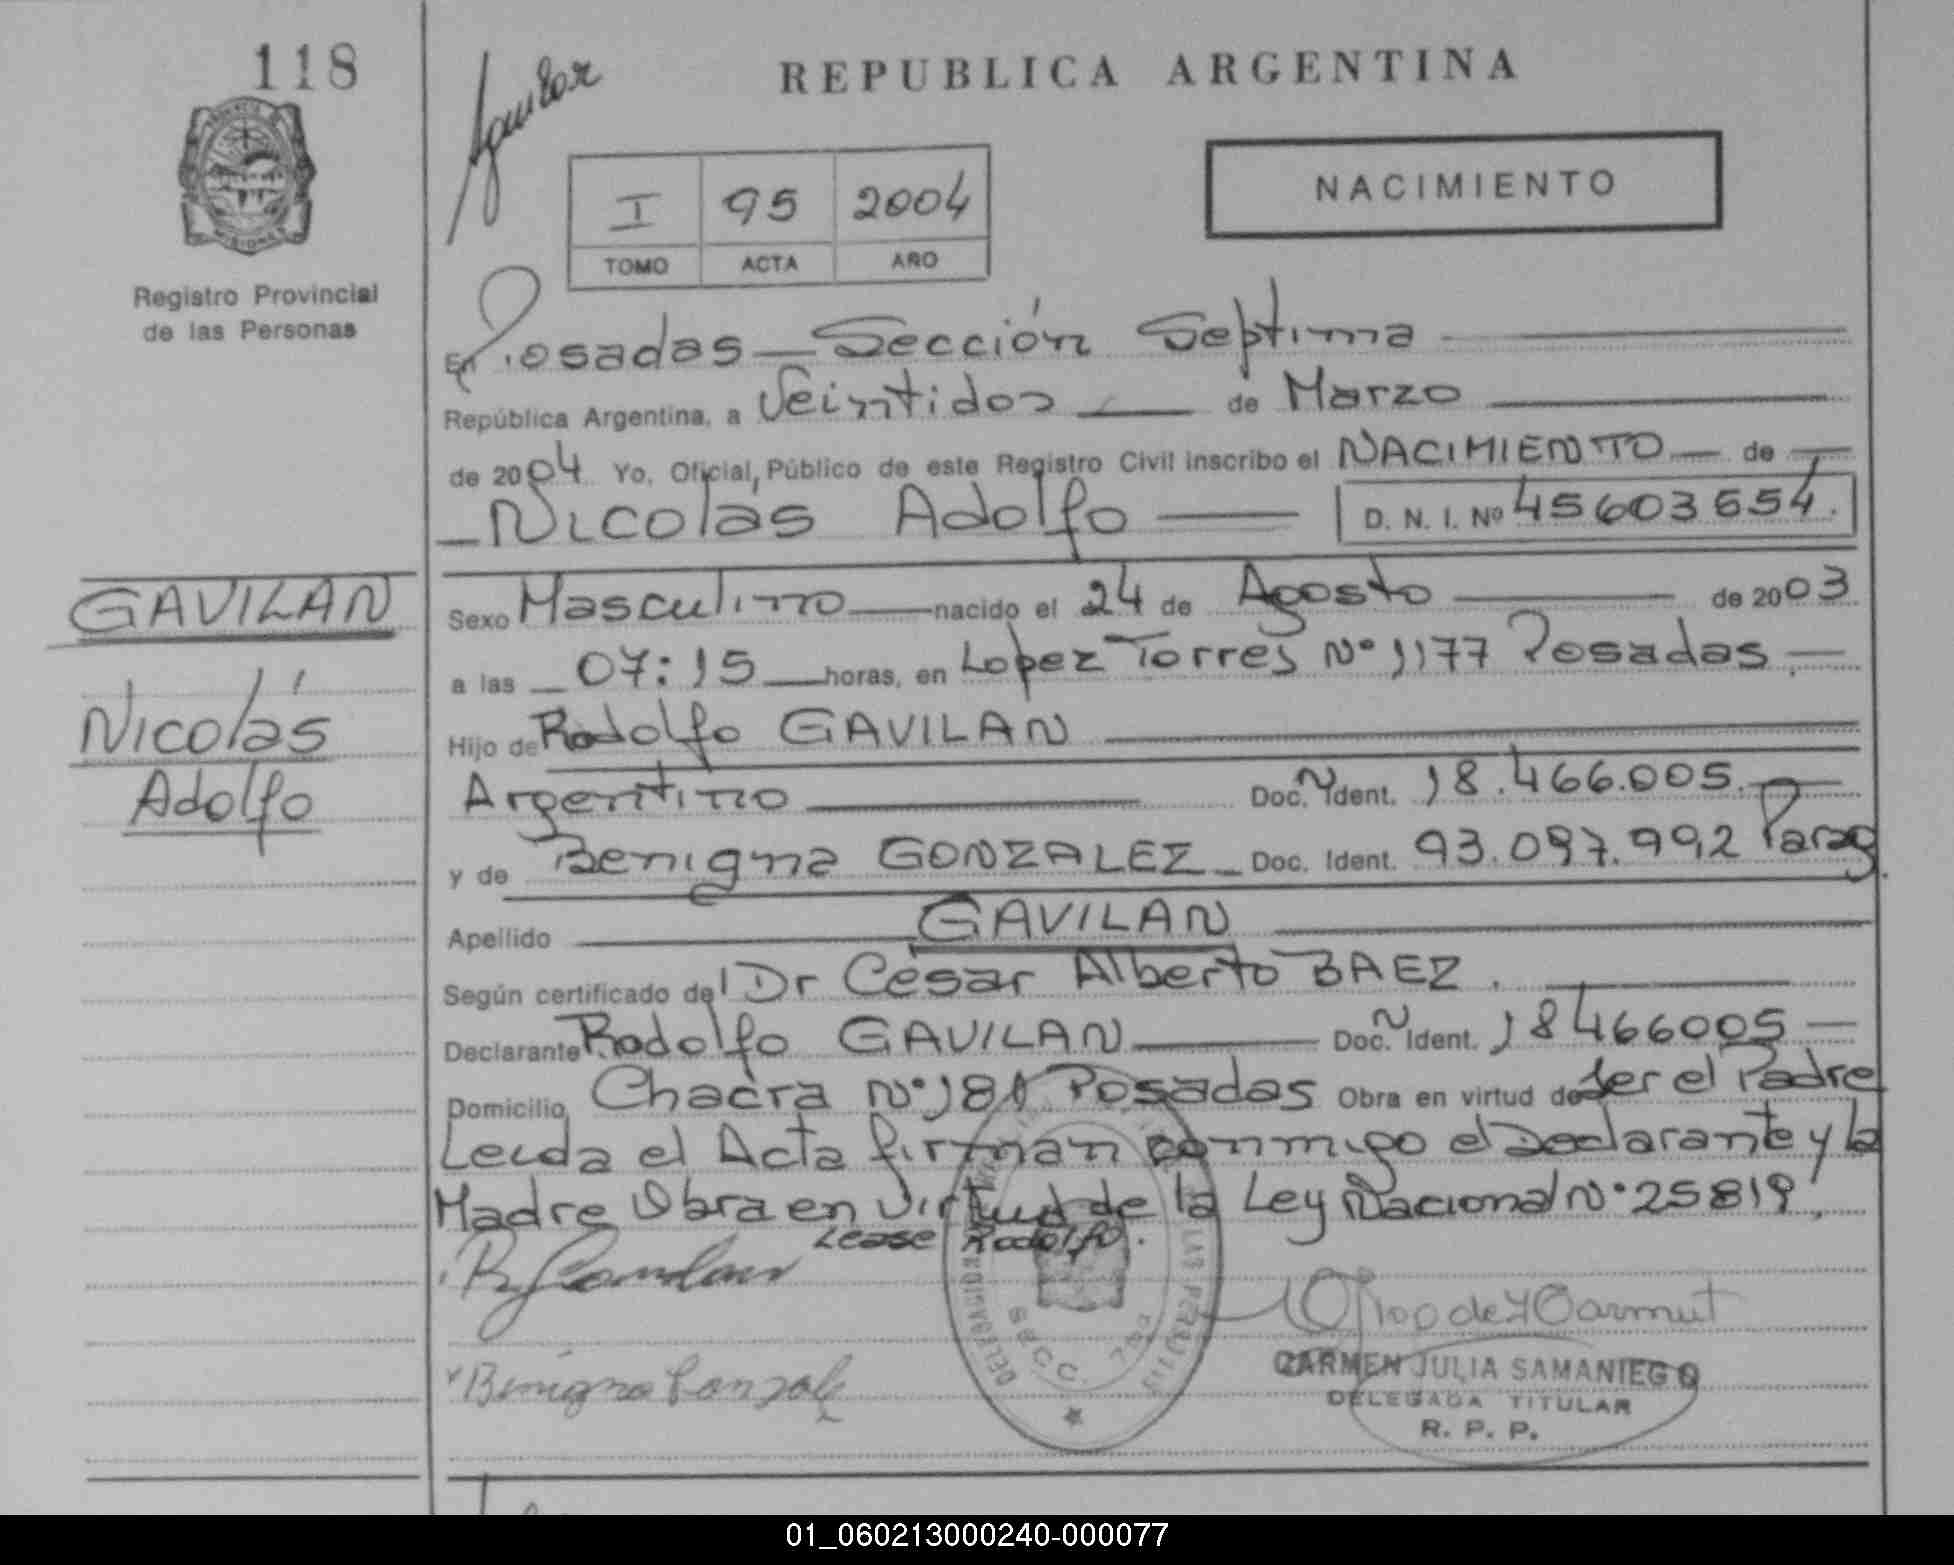 118
Aguilar
REPUBLICA ARGENTINA
MISIONES
Registro Provincial
de las Personas
I 95 2004
TOMO ACTA AÑO
NACIMIENTO
En Posadas — Sección Septima
República Argentina, a Veintidos — de Marzo
de 2004 Yo, Oficial Público de este Registro Civil inscribo el NACIMIENTO — de —
— Nicolás Adolfo — D. N. I. Nº 45603554.
GAVILAN
Nicolás
Adolfo
Sexo Masculino — nacido el 24 de Agosto — de 2003
a las — 07:15 — horas, en Lopez Torres Nº 1177 Posadas.—
Hijo de Rodolfo GAVILAN
Argentino — Doc. N Ident. 18.466.005.—
y de Benigna GONZALEZ — Doc. Ident. 93.097.992 Parag.
Apellido GAVILAN
Según certificado del Dr César Alberto BAEZ.
Declarante Rodolfo GAVILAN — Doc. N Ident. 18466005 —
Domicilio Chacra Nº 181 Posadas Obra en virtud de ser el Padre
Leida el Acta firman conmigo el Declarante y la
Madre Obra en virtud de la Ley Nacional Nº 25819.
Lease Rodolfo.
Benigna Gonzale
SECC. 7
CARMEN JULIA SAMANIEGO
DELEGADA TITULAR
R. P. P.
01_060213000240-000077